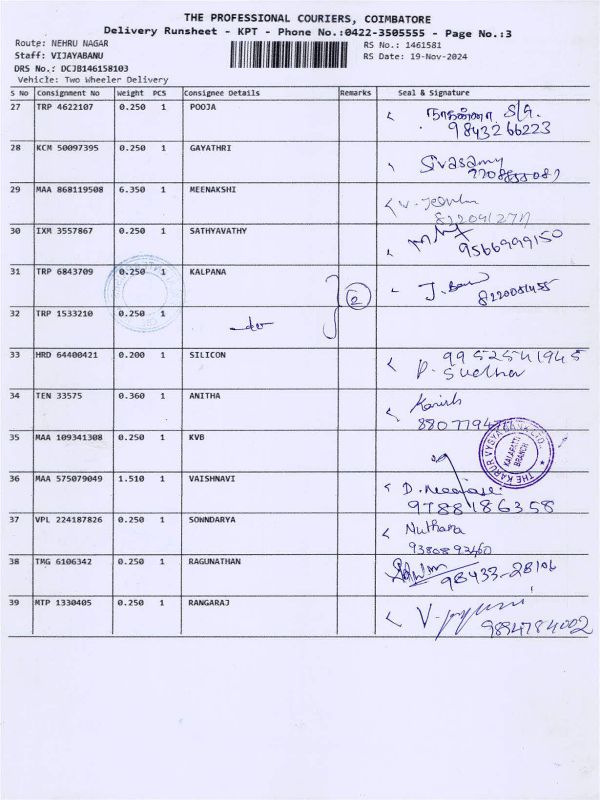 THE PROFESSIONAL COURIERS, COIMBATORE
Delivery Runsheet - KPT - Phone No.:0422-3505555 - Page No.:3
Route: NEHRU NAGAR RS No.: 1461581
Staff: VIJAYABANU RS Date: 19-Nov-2024
DRS No.: DCJB146158103
Vehicle: Two Wheeler Delivery
S No Consignment No Weight PCS Consignee Details Remarks Seal & Signature
27 TRP 4622107 0.250 1 POOJA
9843266223
28 KCM 50097395 0.250 1 GAYATHRI Sivasamy
29 MAA 868119508 6.350 1 MEENAKSHI
30 IXM 3557867 0.250 1 SATHYAVATHY
9566999150
31 TRP 6843709 0.250 1 KALPANA
2
32 TRP 1533210 0.250 1 do
33 HRD 64400421 0.200 1 SILICON 9952541945
P. Sudha
34 TEN 33575 0.360 1 ANITHA
35 MAA 109341308 0.250 1 KVB THE KARUR VYSYA BANK LTD. KALAPATTI BRANCH
36 MAA 575079049 1.510 1 VAISHNAVI
9788186358
37 VPL 224187826 0.250 1 SONNDARYA Nuthana
9380893460
38 TMG 6106342 0.250 1 RAGUNATHAN 98433-28106
39 MTP 1330405 0.250 1 RANGARAJ
9894784002